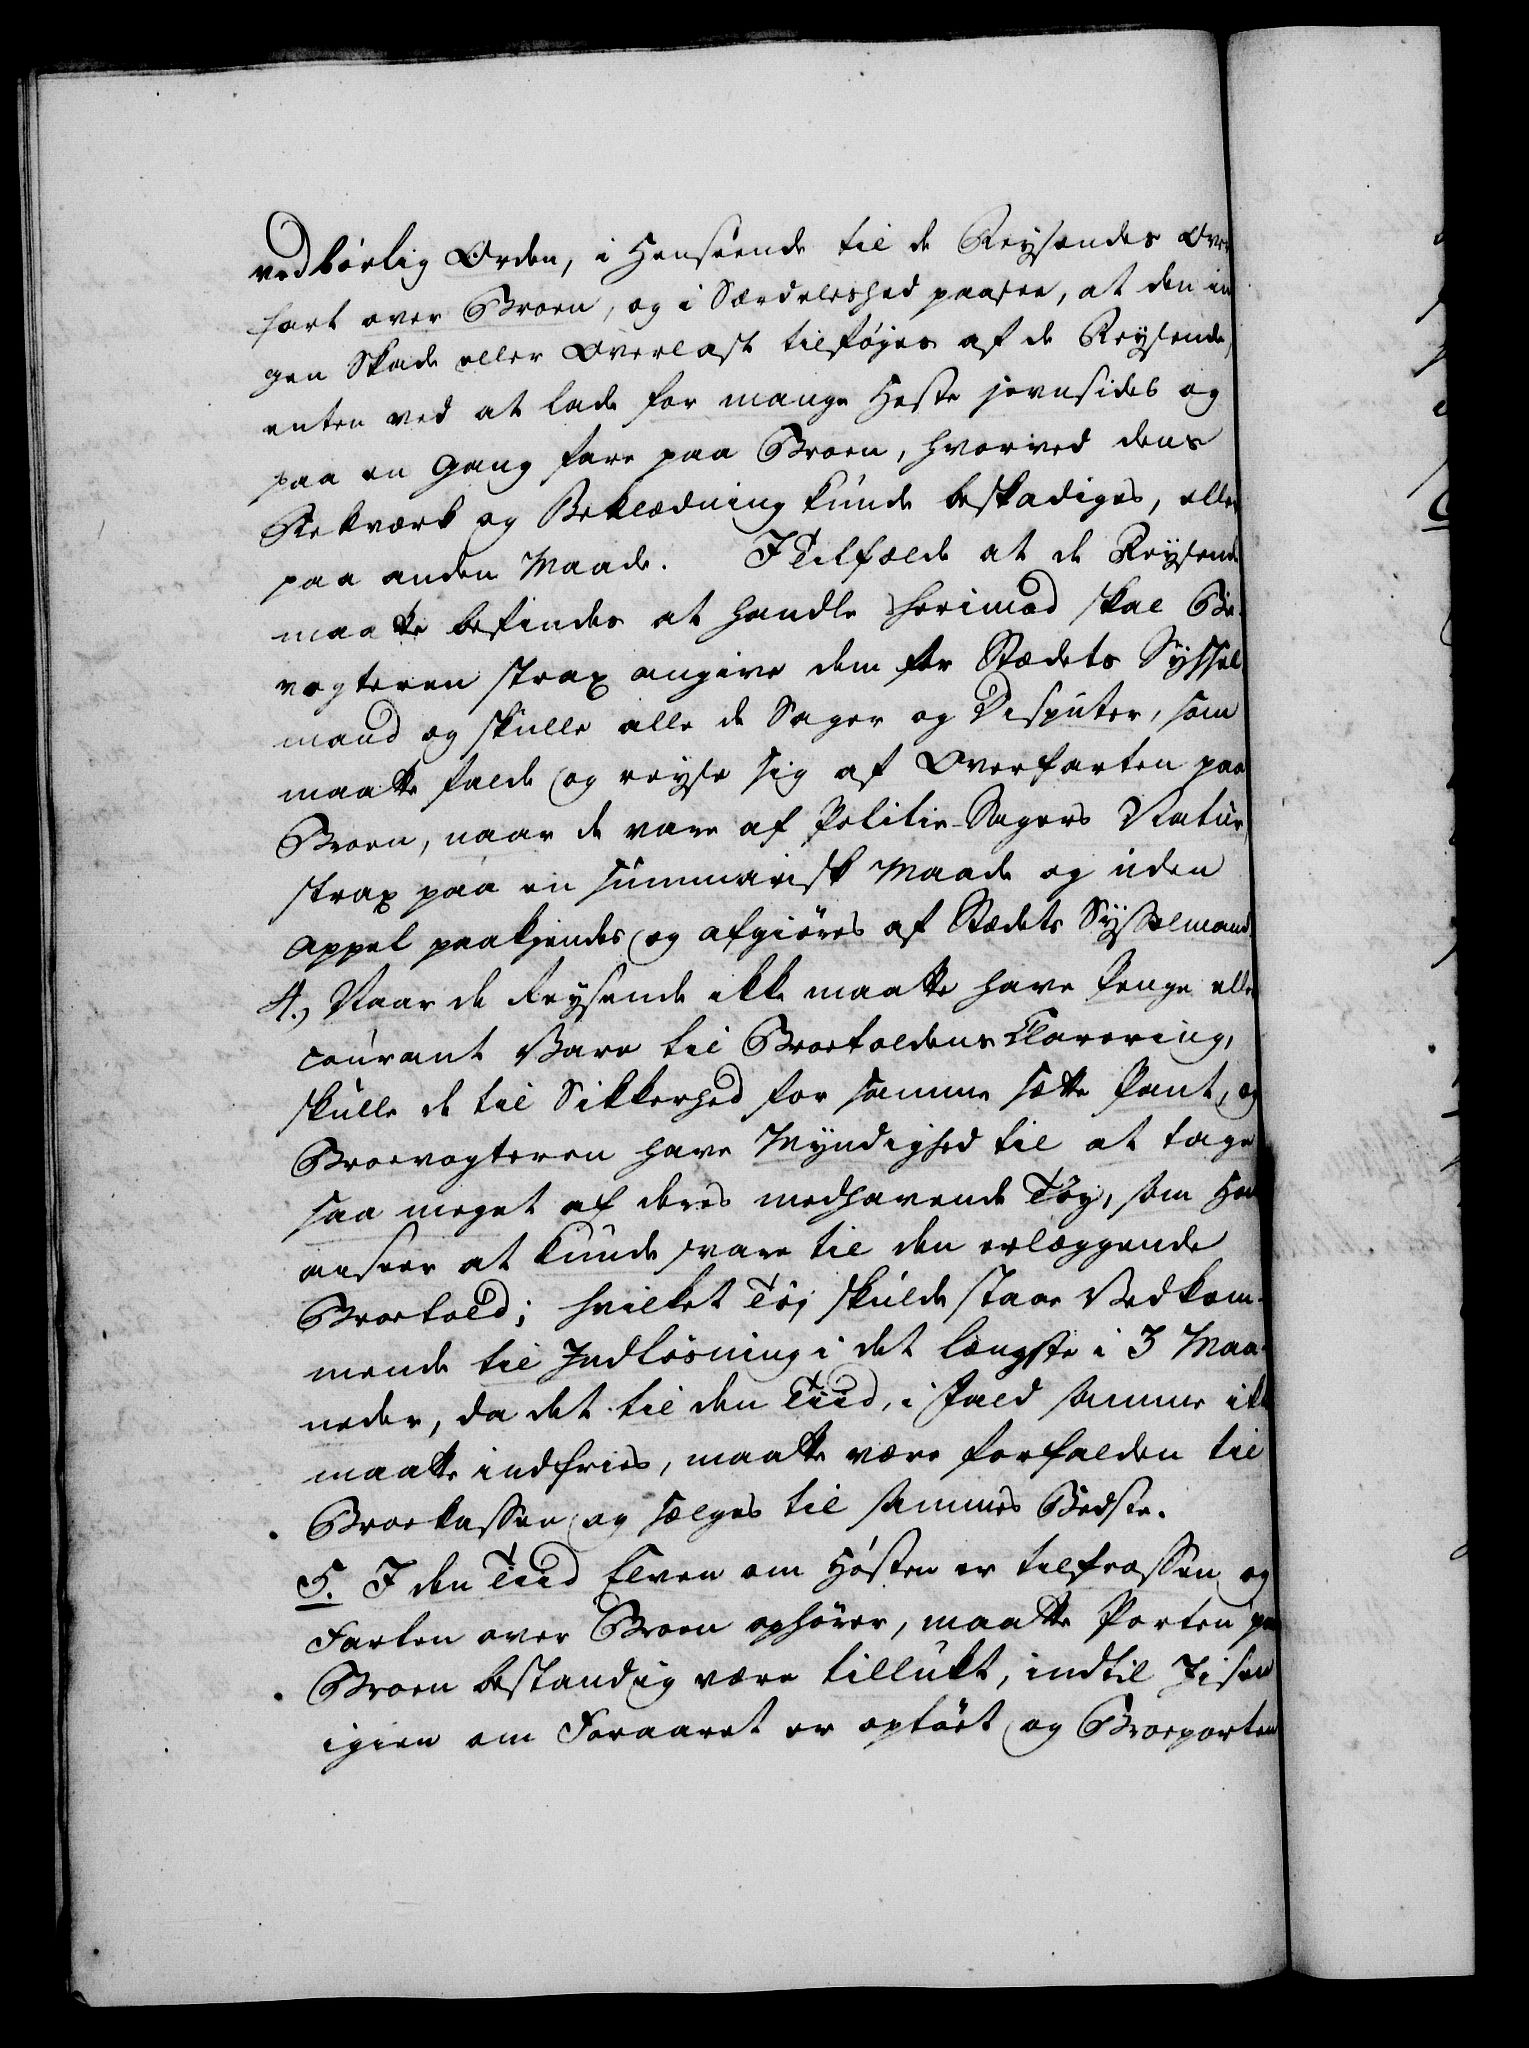 vedbørlig Orden, i Henseende til de Reysendes Over
fart over Broen, og i Særdeleshed paasee, at den in
gen Skade eller Overlast tilføyes af de Reysende,
enten ved at lade for mange Heste jevnsides og
paa en Gang fare paa Broen, hvorved dens
Rekværk og Beklædning kunde beskadiges, eller
paa anden Maade. I Tilfælde at de Reysende
maatte befindes at handle herimod skal Bro-
vogteren strax angive dem for Stædets Syssel
mand og skulle alle de Sager og Disputer, som
maatte falde og reyse sig af Overfarten paa
Broen, naar de vare af Politie-Sagers Natur,
strax paa en summarisk Maade og uden
Appel paakjendes og afgiøres af Stædets Sysselmand.
4., Naar de Reysende ikke maatte have Penge eller
courant Vare til Broetoldens Clarering,
skulle de til Sikkerhed for samme sætte Pant, og
Broevogteren have Myndighed til at tage
saa meget af deres medhavende Tøy, som Han
anseer at kunde svare til den erlæggende
Broetold; hvilket Tøj skulde staae Vedkom-
mende til Indløsning i det længste i 3 Maa-
neder, da det til den Tiid, i Fald samme ikke
maatte indfries, maatte være forfalden til
Broekassen og sælges til sammes Bedste.
5. I den Tiid Elven om Høsten er tilfrossen og
Farten over Broen ophører, maatte Porten paa
Broen bestandig være tillukt, indtil Jisen
igien om Foraaret er optøet og Broeporten